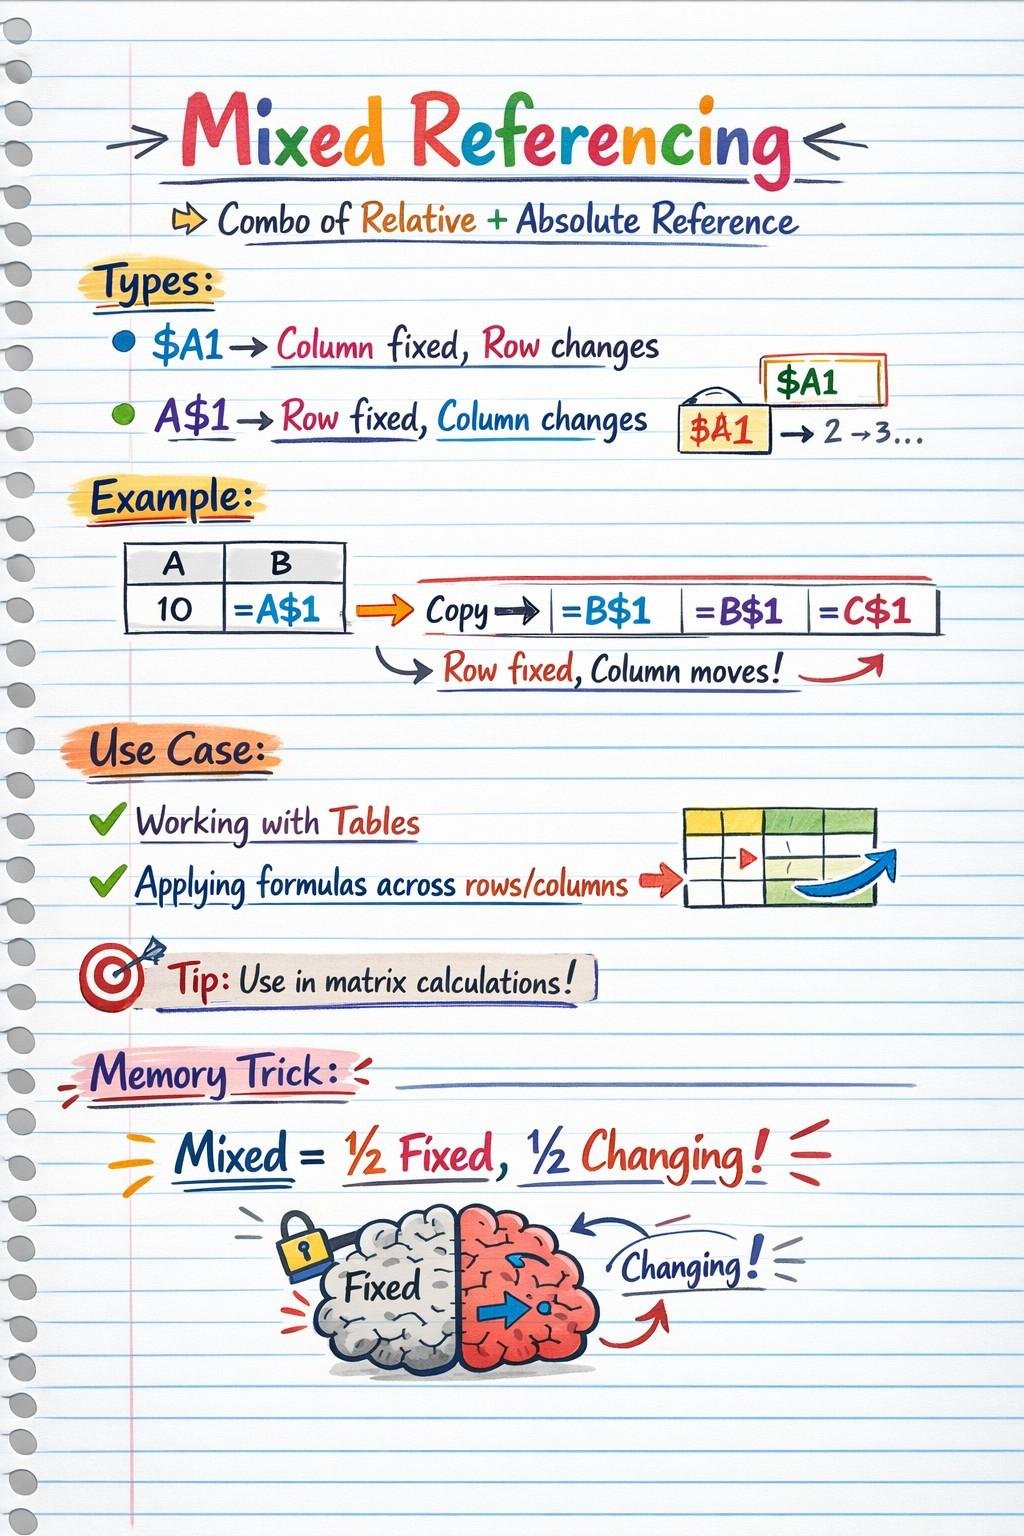 Mixed Referencing
Combo of Relative + Absolute Reference
Types:
$A1 → Column fixed, Row changes
A$1 → Row fixed, Column changes
$A1
$A1 → 2 → 3...
Example:
A B
10 =A$1
Copy → =B$1 =B$1 =C$1
Row fixed, Column moves!
Use Case:
Working with Tables
Applying formulas across rows/columns
Tip: Use in matrix calculations!
Memory Trick:
Mixed = ½ Fixed, ½ Changing!
Fixed
Changing!